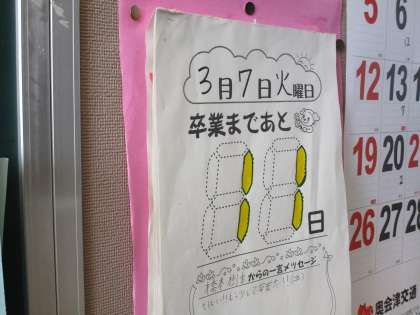 3月7日火曜日
卒業まであと
11日
からの一言メッセージ
5 6
12 13
19 20 21
26 27 28
奥会津交通